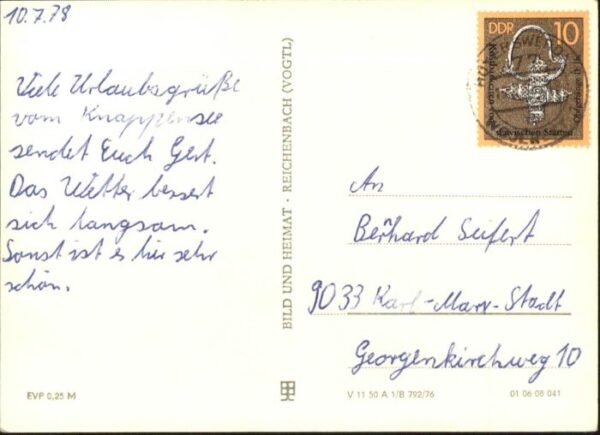 10.7.78
Viele Urlaubsgrüße
vom Knappensee
sendet Euch Gert.
Das Wetter bessert
sich langsam.
Sonst ist es hier sehr
schön.
EVP 0,25 M
BILD UND HEIMAT · REICHENBACH (VOGTL)
DDR 10
slavischen Stätten
An
Berhard Seifert
9033 Karl-Marx-Stadt
Georgenkirchweg 10
V 11 50 A 1/B 792/76
01 06 08 041